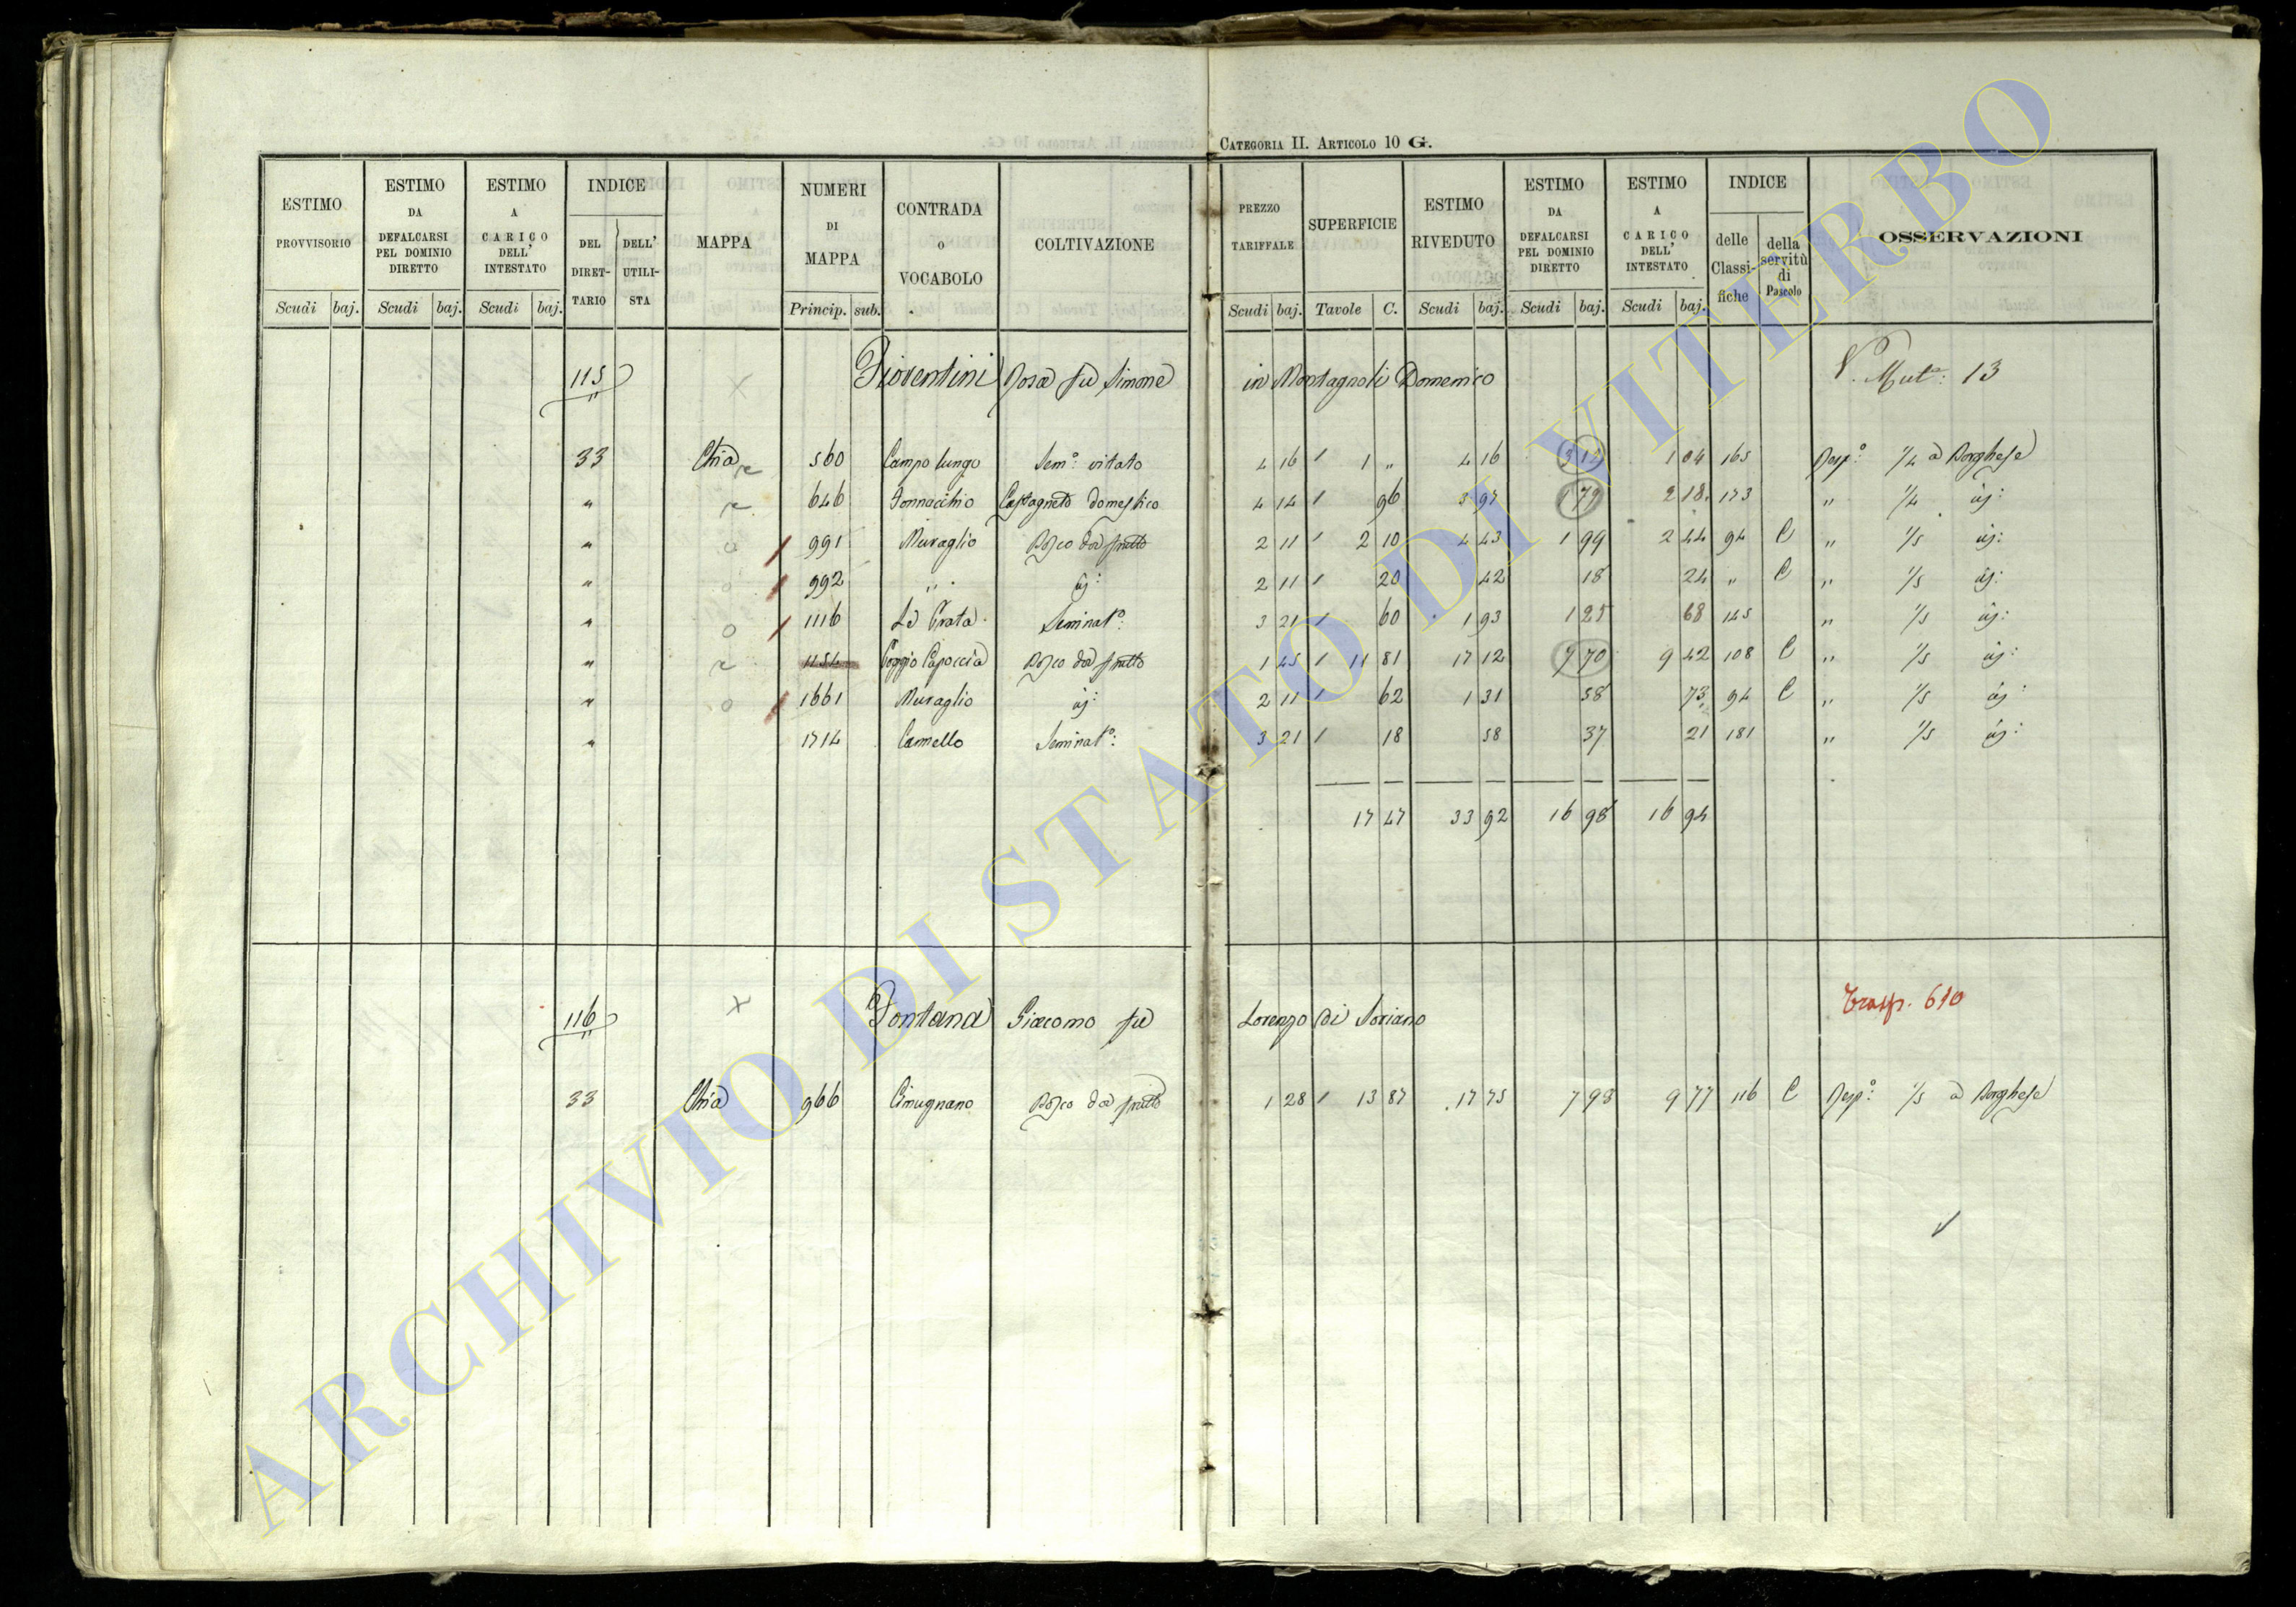 CATEGORIA II. ARTICOLO 10 G.
ESTIMO PROVVISORIO Scudi baj. ESTIMO DA DEFALCARSI PEL DOMINIO DIRETTO Scudi baj. ESTIMO A CARICO DELL' INTESTATO Scudi baj. INDICE DEL DIRETTARIO DELL' UTILISTA MAPPA NUMERI DI MAPPA Princip. sub. CONTRADA O VOCABOLO COLTIVAZIONE PREZZO TARIFFALE Scudi baj. SUPERFICIE Tavole C. ESTIMO RIVEDUTO Scudi baj. ESTIMO DA DEFALCARSI PEL DOMINIO DIRETTO Scudi baj. ESTIMO A CARICO DELL' INTESTATO Scudi baj. INDICE delle Classifiche della servitù di Pascolo OSSERVAZIONI
115 Fioventini Rosa fu Simone in Montagnoli Domenico V. Mut: 13
33 Chia 560 Campo lungo Sem: vitato 4 16 1 1 " 4 16 3 12 1 04 165 Resp: 1/4 a Borghese
" 646 Fornacchio Castagneto domestico 4 14 1 96 3 97 1 79 2 18 173 " 1/4 id:
" 991 Muraglio Bosco da frutto 2 11 1 2 10 4 43 1 99 2 44 94 C " 1/5 id:
" 992 " id: 2 11 1 20 42 18 24 " C " 1/5 id:
" 1116 La Grata Seminat: 3 21 1 60 1 93 1 25 68 145 " 1/5 id:
" 1154 Poggio Capoccia Bosco da frutto 1 45 1 11 81 17 12 7 70 9 42 108 C " 1/5 id:
" 1661 Muraglio id: 2 11 1 62 1 31 58 73 94 C " 1/5 id:
" 1714 Cannello Seminat: 3 21 1 18 58 37 21 181 " 1/5 id:
17 47 33 92 16 98 16 94
116 Fontana Giacomo fu Lorenzo di Soriano Trasp. 610
33 Chia 966 Cimugnano Bosco da frutto 1 28 1 13 87 17 75 7 98 9 77 116 C Resp: 1/5 a Borghese
ARCHIVIO DI STATO DI VITERBO